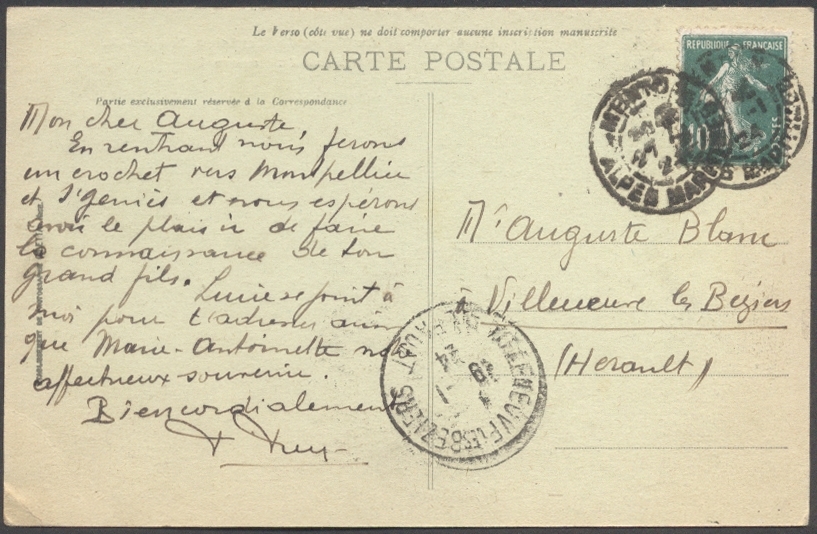 Le Verso (côté vue) ne doit comporter aucune inscription manuscrite
CARTE POSTALE
Partie exclusivement réservée à la Correspondance
Mon cher Auguste,
En rentrant nous ferons
un crochet vers Montpellier
et St Geniès et nous espérons
avoir le plaisir de faire
la connaissance de ton
grand fils. Lucie se joint à
moi pour t'adresser ainsi
que Marie-Antoinette nos
affectueux souvenirs.
Bien cordialement
RÉPUBLIQUE FRANÇAISE
10
MENTON
ALPES MARIT
Mr Auguste Blanc
Villeneuve les Béziers
(Hérault)
VILLENEUVE-LES-BEZIERS
HERAULT